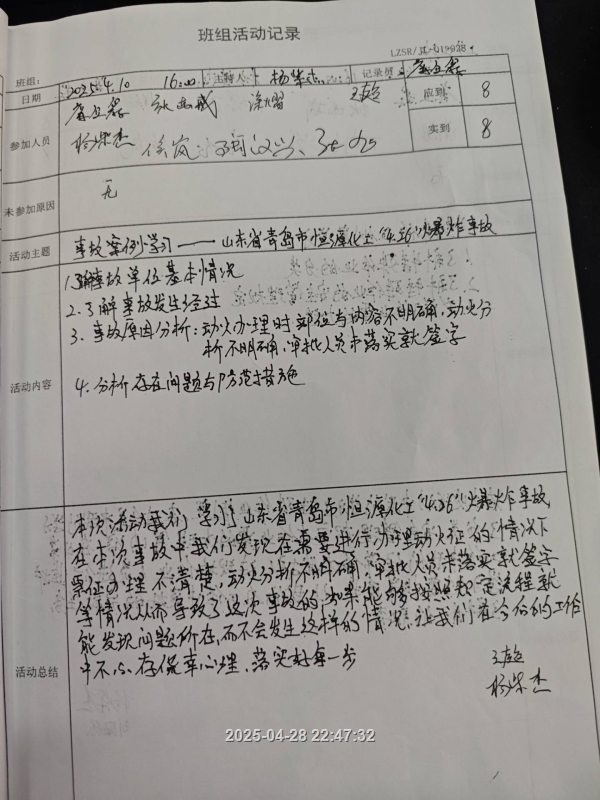 班组活动记录
班组:
日期 2025.4.10 16:00 主持人 杨荣杰 记录员
应到 8
参加人员
杨荣杰 侯岚
实到 8
未参加原因 无
活动主题 事故案例学习——山东省青岛市恒源化工"4.26"爆炸事故
1.了解事故单位基本情况
2.了解事故发生经过
3.事故原因分析:动火办理时部位与内容不明确,动火分
析不明确,审批人员未落实就签字
活动内容
4.分析存在问题与防范措施
本次活动我们学习了山东省青岛市恒源化工"4.26"爆炸事故
在本次事故中我们发现在需要进行办理动火证的情况下
票证办理不清楚,动火分析不明确,审批人员未落实就签字
等情况从而导致了这次事故的,如果能够按照规定流程就
能发现问题所在,而不会发生这样的情况,让我们在今后的工作
中不心存侥幸心理,落实好每一步
活动总结
杨荣杰
2025-04-28 22:47:32